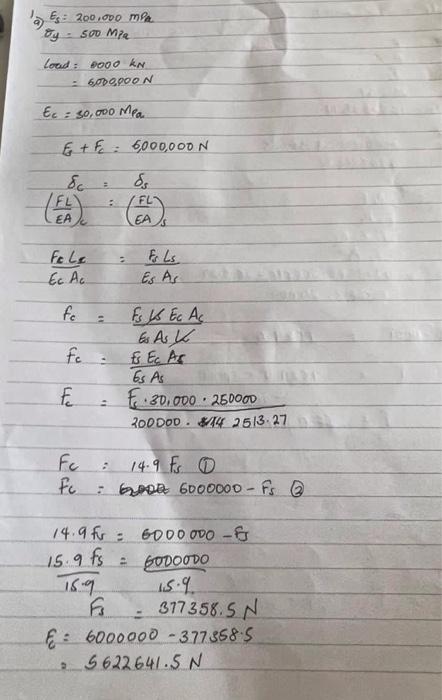 1a) Es: 200,000 mPa
σy = 500 MPa
Load: 6000 kN
= 6,000,000 N
Ec = 30,000 MPa
Fs + Fc = 6,000,000 N
δc = δs
(FL/EA)c = (FL/EA)s
Fc Lc / Ec Ac = Fs Ls / Es As
Fc = Fs Ls Ec Ac / Es As Lc
Fc = Fs Ec Ac / Es As
Fc = Fs · 30,000 · 250000 / 200000 · 2513.27
Fc = 14.9 Fs ①
Fc = 6000000 - Fs ②
14.9 Fs = 6000000 - Fs
15.9 Fs / 15.9 = 6000000 / 15.9
Fs = 377358.5 N
Fc = 6000000 - 377358.5
= 5622641.5 N